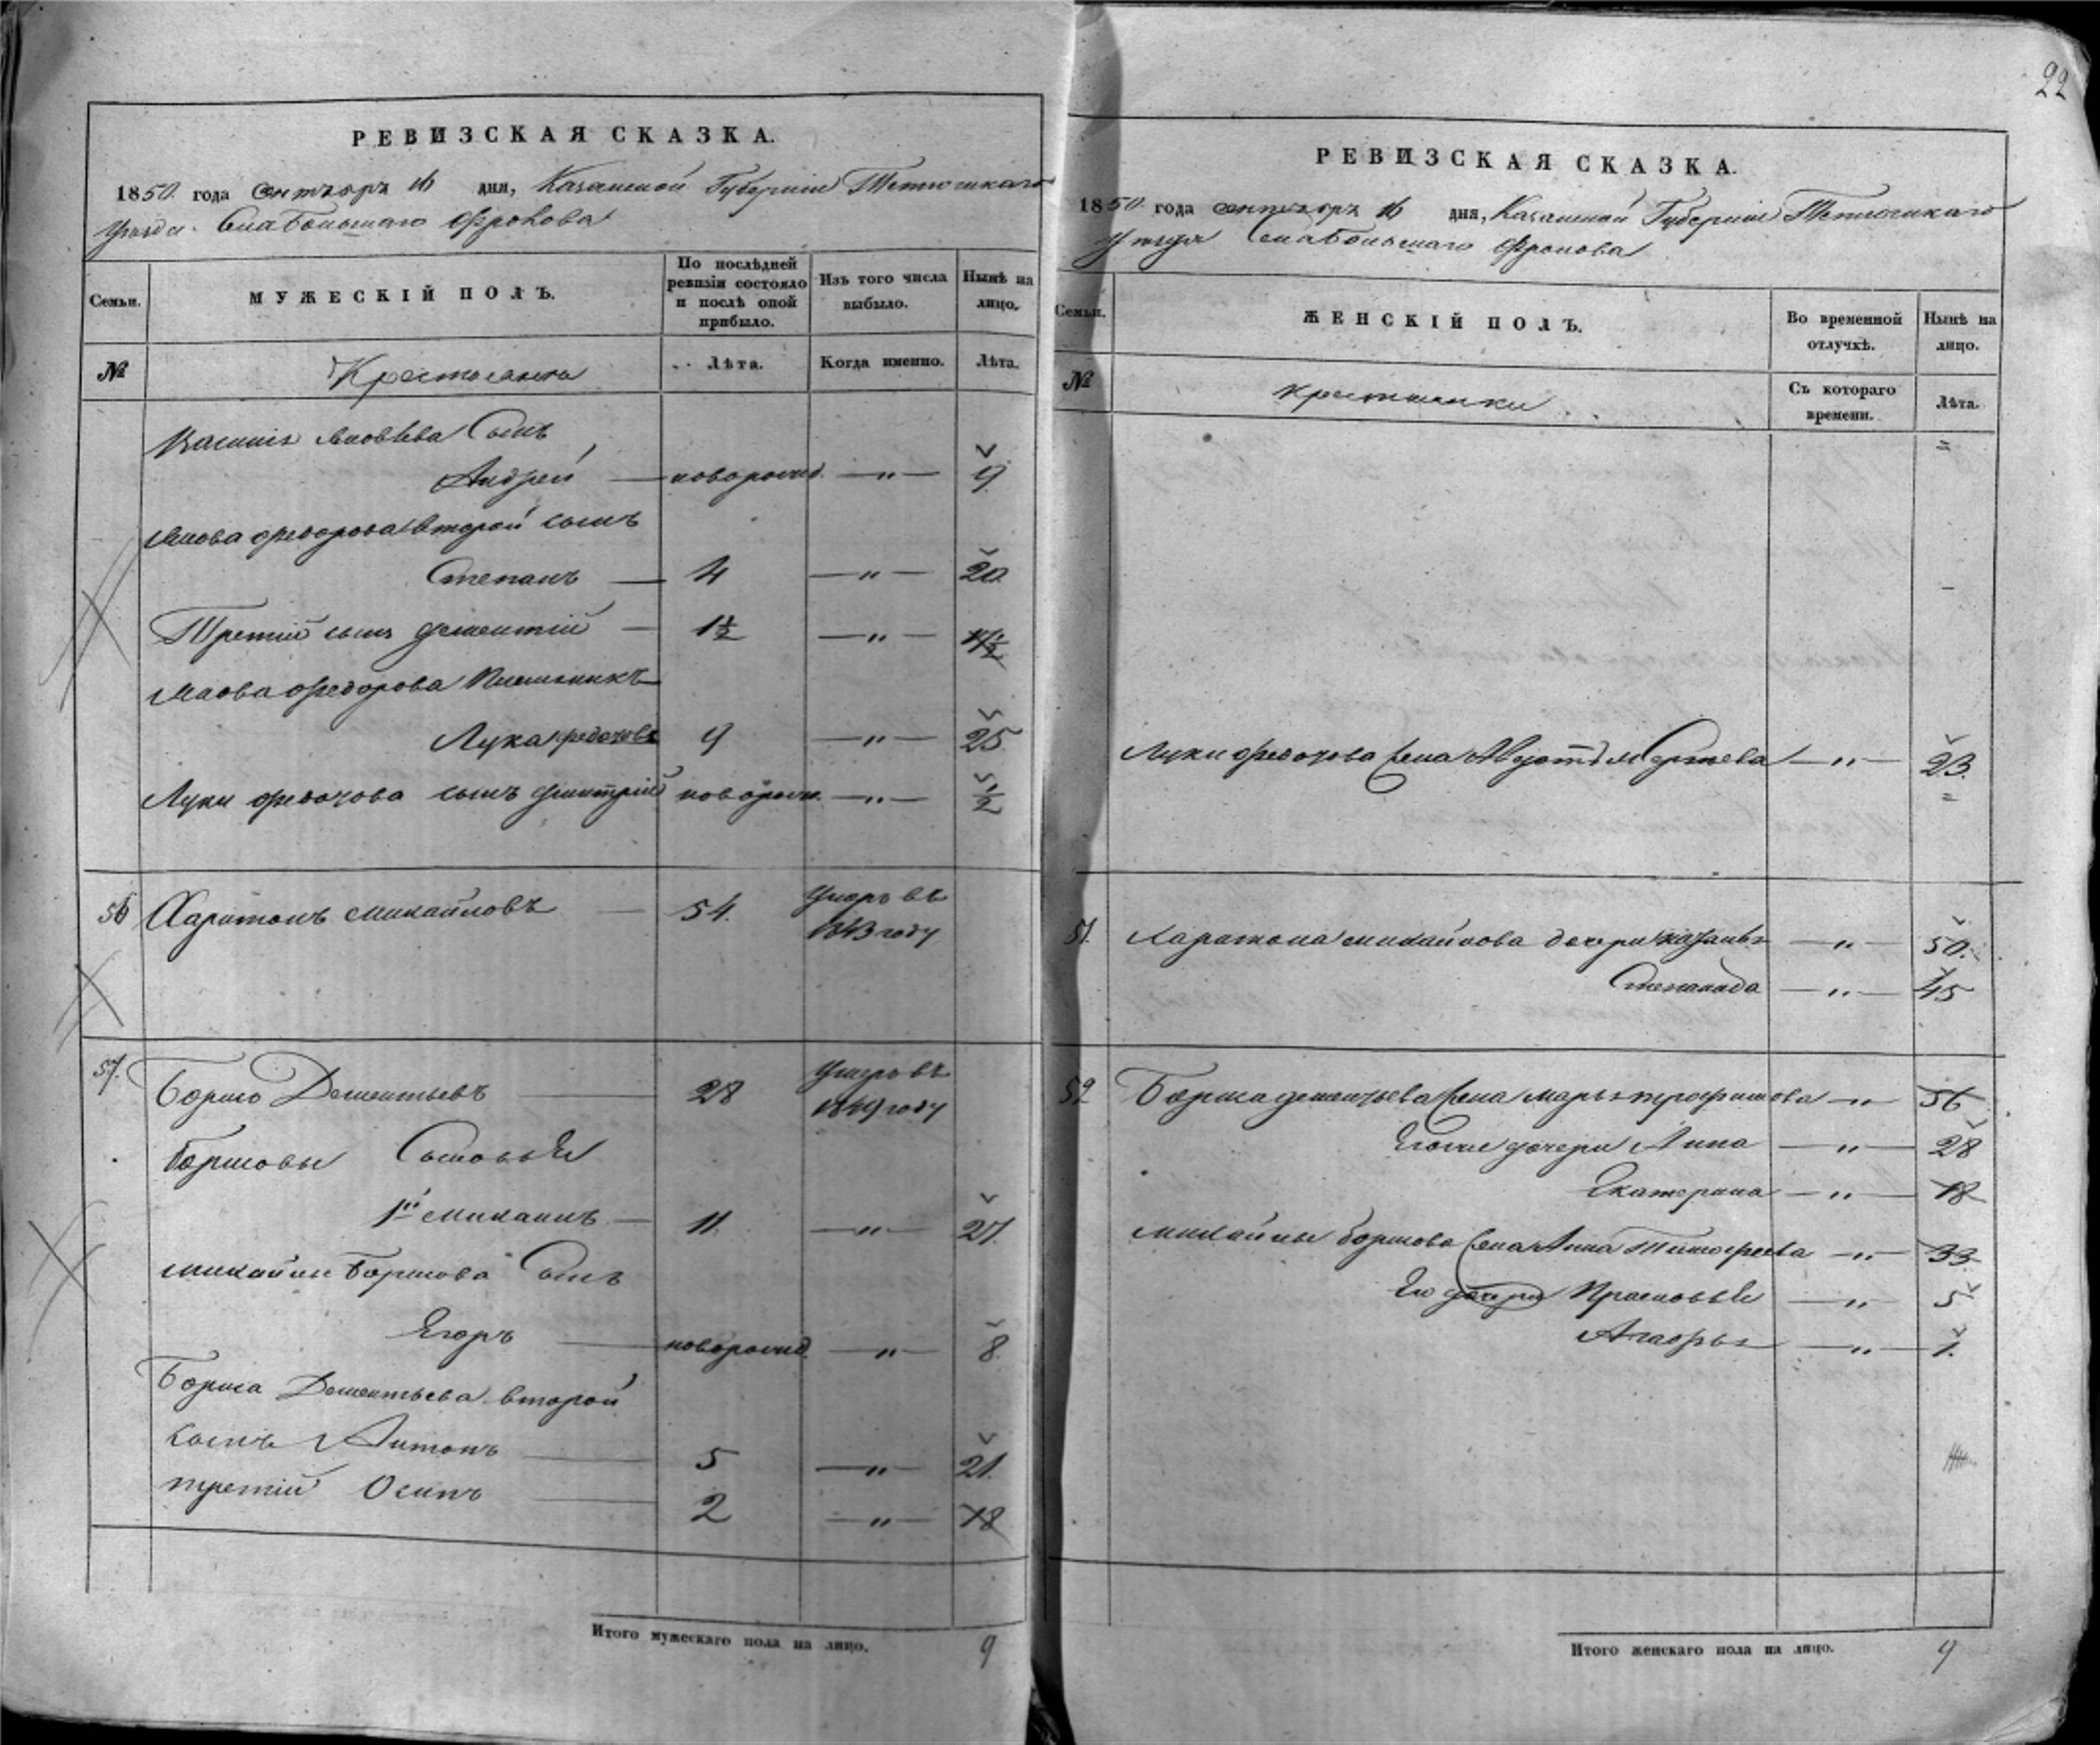 РЕВИЗСКАЯ СКАЗКА.
1850 года Сентября 16 дня, Казанской Губернiи Тетюшскаго
уезда Села Большаго Фролова
Семьи.
МУЖЕСКIЙ ПОЛЪ.
По послѣдней ревизiи состояло и послѣ оной прибыло.
Изъ того числа выбыло.
Нынѣ на лицо.
№
Крестьяне
Лѣта.
Когда именно.
Лѣта.
Василiя Яковлева Сынъ
Андрей — новорожд. — „ — 9
Якова Федорова второй сынъ
Степанъ — 4 — „ — 20.
Третiй сынъ Дементiй — 1½ — „ — 17½
Якова Федорова Племянникъ
Лука Федотовъ 9 — „ — 25
Луки Федотова сынъ Дмитрiй новорожд. — „ — ½
56 Харитонъ Михайловъ — 54. Умеръ въ
1843 году
57. Борисъ Дементьевъ — 28 Умеръ въ
1849 году
Борисовы Сыновья
1й Михаилъ — 11. — „ — 27.
Михайлы Борисова Сынъ
Егоръ — новорожд. — „ — 8.
Бориса Дементьева второй
сынъ Антонъ — 5 — „ — 21.
третiй Осипъ — 2 — „ — 18
Итого мужескаго пола на лицо. 9
22
РЕВИЗСКАЯ СКАЗКА.
1850 года Сентября 16 дня, Казанской Губернiи Тетюшскаго
уезда Села Большаго Фролова
Семьи.
ЖЕНСКIЙ ПОЛЪ.
Во временной отлучкѣ.
Нынѣ на лицо.
№
Крестьянки
Съ котораго времени.
Лѣта.
Луки Федотова Жена — „ — 23.
51. Харитона Михайлова дочери — „ — 50.
Степанида — „ — 45
52 Бориса Дементьева Жена Марья Трофимова — „ — 56
Ево дочери Анна — „ — 28
Екатерина — „ — 18
Михайлы Борисова Жена Анна Тимофеева — „ — 33
Ево дочери Прасковья — „ — 5
— „ — 1.
Итого женскаго пола на лицо. 9